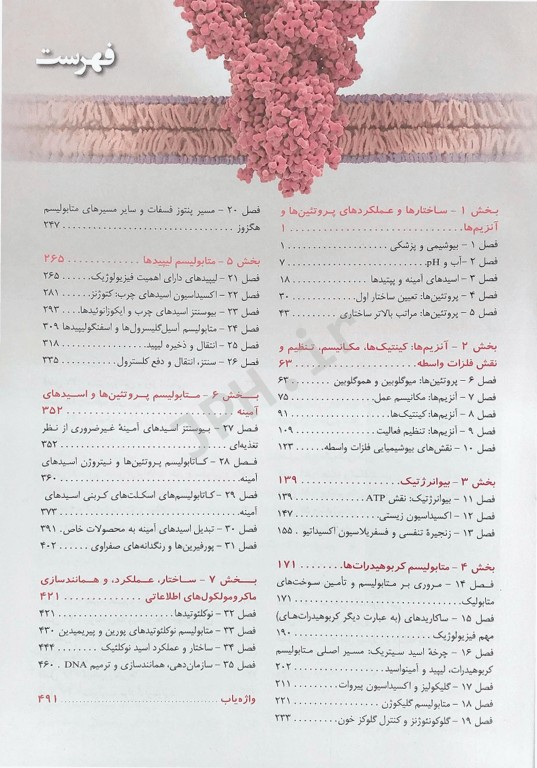 فهرست
بخش ۱ - ساختارها و عملکردهای پروتئین‌ها و
آنزیم‌ها. . . . . . . . . . ۱
فصل ۱ - بیوشیمی و پزشکی . . . . . . . . . . ۱
فصل ۲ - آب و pH. . . . . . . . . . ۷
فصل ۳ - اسیدهای آمینه و پپتیدها . . . . . . . . . . ۱۸
فصل ۴ - پروتئین‌ها: تعیین ساختار اول . . . . . . . . . . ۳۰
فصل ۵ - پروتئین‌ها: مراتب بالاتر ساختاری . . . . . . . . . . ۴۳
بخش ۲ - آنزیم‌ها: کینتیک‌ها، مکانیسم، تنظیم و
نقش فلزات واسطه. . . . . . . . . . ۶۳
فصل ۶ - پروتئین‌ها: میوگلوبین و هموگلوبین . . . . . . . ۶۳
فصل ۷ - آنزیم‌ها: مکانیسم عمل. . . . . . . . . . ۷۵
فصل ۸ - آنزیم‌ها: کینتیک‌ها. . . . . . . . . . ۹۱
فصل ۹ - آنزیم‌ها: تنظیم فعالیت . . . . . . . . . . ۱۰۹
فصل ۱۰ - نقش‌های بیوشیمیایی فلزات واسطه. . . . . . ۱۲۳
بخش ۳ - بیوانرژتیک. . . . . . . . . . ۱۳۹
فصل ۱۱ - بیوانرژتیک: نقش ATP . . . . . . . . . . ۱۳۹
فصل ۱۲ - اکسیداسیون زیستی. . . . . . . . . . ۱۴۷
فصل ۱۳ - زنجیرهٔ تنفسی و فسفریلاسیون اکسیداتیو . ۱۵۵
بخش ۴ - متابولیسم کربوهیدرات‌ها. . . . . . . . . . ۱۷۱
فصل ۱۴ - مروری بر متابولیسم و تأمین سوخت‌های
متابولیک. . . . . . . . . . ۱۷۱
فصل ۱۵ - ساکاریدهای (به عبارت دیگر کربوهیدرات‌های)
مهم فیزیولوژیک . . . . . . . . . . ۱۹۰
فصل ۱۶ - چرخهٔ اسید سیتریک: مسیر اصلی متابولیسم
کربوهیدرات، لیپید و آمینواسید. . . . . . . . . . ۲۰۲
فصل ۱۷ - گلیکولیز و اکسیداسیون پیروات . . . . . . . . . . ۲۱۱
فصل ۱۸ - متابولیسم گلیکوژن. . . . . . . . . . ۲۲۱
فصل ۱۹ - گلوکونئوژنز و کنترل گلوکز خون. . . . . . . . . . ۲۳۳
فصل ۲۰ - مسیر پنتوز فسفات و سایر مسیرهای متابولیسم
هگزوز . . . . . . . . . . ۲۴۷
بخش ۵ - متابولیسم لیپیدها . . . . . . . . . . ۲۶۵
فصل ۲۱ - لیپیدهای دارای اهمیت فیزیولوژیک. . . . . . ۲۶۵
فصل ۲۲ - اکسیداسیون اسیدهای چرب: کتوژنز. . . . . . ۲۸۱
فصل ۲۳ - بیوسنتز اسیدهای چرب و ایکوزانوئیدها. . . . ۲۹۳
فصل ۲۴ - متابولیسم آسیل‌گلیسرول‌ها و اسفنگولیپیدها ۳۰۹
فصل ۲۵ - انتقال و ذخیره لیپید. . . . . . . . . . ۳۱۸
فصل ۲۶ - سنتز، انتقال و دفع کلسترول. . . . . . . . . . ۳۳۵
بخش ۶ - متابولیسم پروتئین‌ها و اسیدهای
آمینه . . . . . . . . . . ۳۵۲
فصل ۲۷ - بیوسنتز اسیدهای آمینهٔ غیرضروری از نظر
تغذیه‌ای . . . . . . . . . . ۳۵۲
فصل ۲۸ - کاتابولیسم پروتئین‌ها و نیتروژن اسیدهای
آمینه. . . . . . . . . . ۳۶۰
فصل ۲۹ - کاتابولیسم‌های اسکلت‌های کربنی اسیدهای
آمینه. . . . . . . . . . ۳۷۳
فصل ۳۰ - تبدیل اسیدهای آمینه به محصولات خاص. . ۳۹۱
فصل ۳۱ - پورفیرین‌ها و رنگدانه‌های صفراوی . . . . . . ۴۰۲
بخش ۷ - ساختار، عملکرد، و همانندسازی
ماکرومولکول‌های اطلاعاتی . . . . . . . . . . ۴۲۱
فصل ۳۲ - نوکلئوتیدها. . . . . . . . . . ۴۲۱
فصل ۳۳ - متابولیسم نوکلئوتیدهای پورین و پیریمیدین ۴۳۰
فصل ۳۴ - ساختار و عملکرد اسید نوکلئیک . . . . . . . . . . ۴۴۴
فصل ۳۵ - سازمان‌دهی، همانندسازی و ترمیم DNA . . ۴۶۰
واژه‌یاب. . . . . . . . . . ۴۹۱
JPH.ir